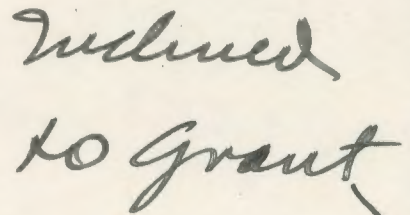 Inclined
to Grant